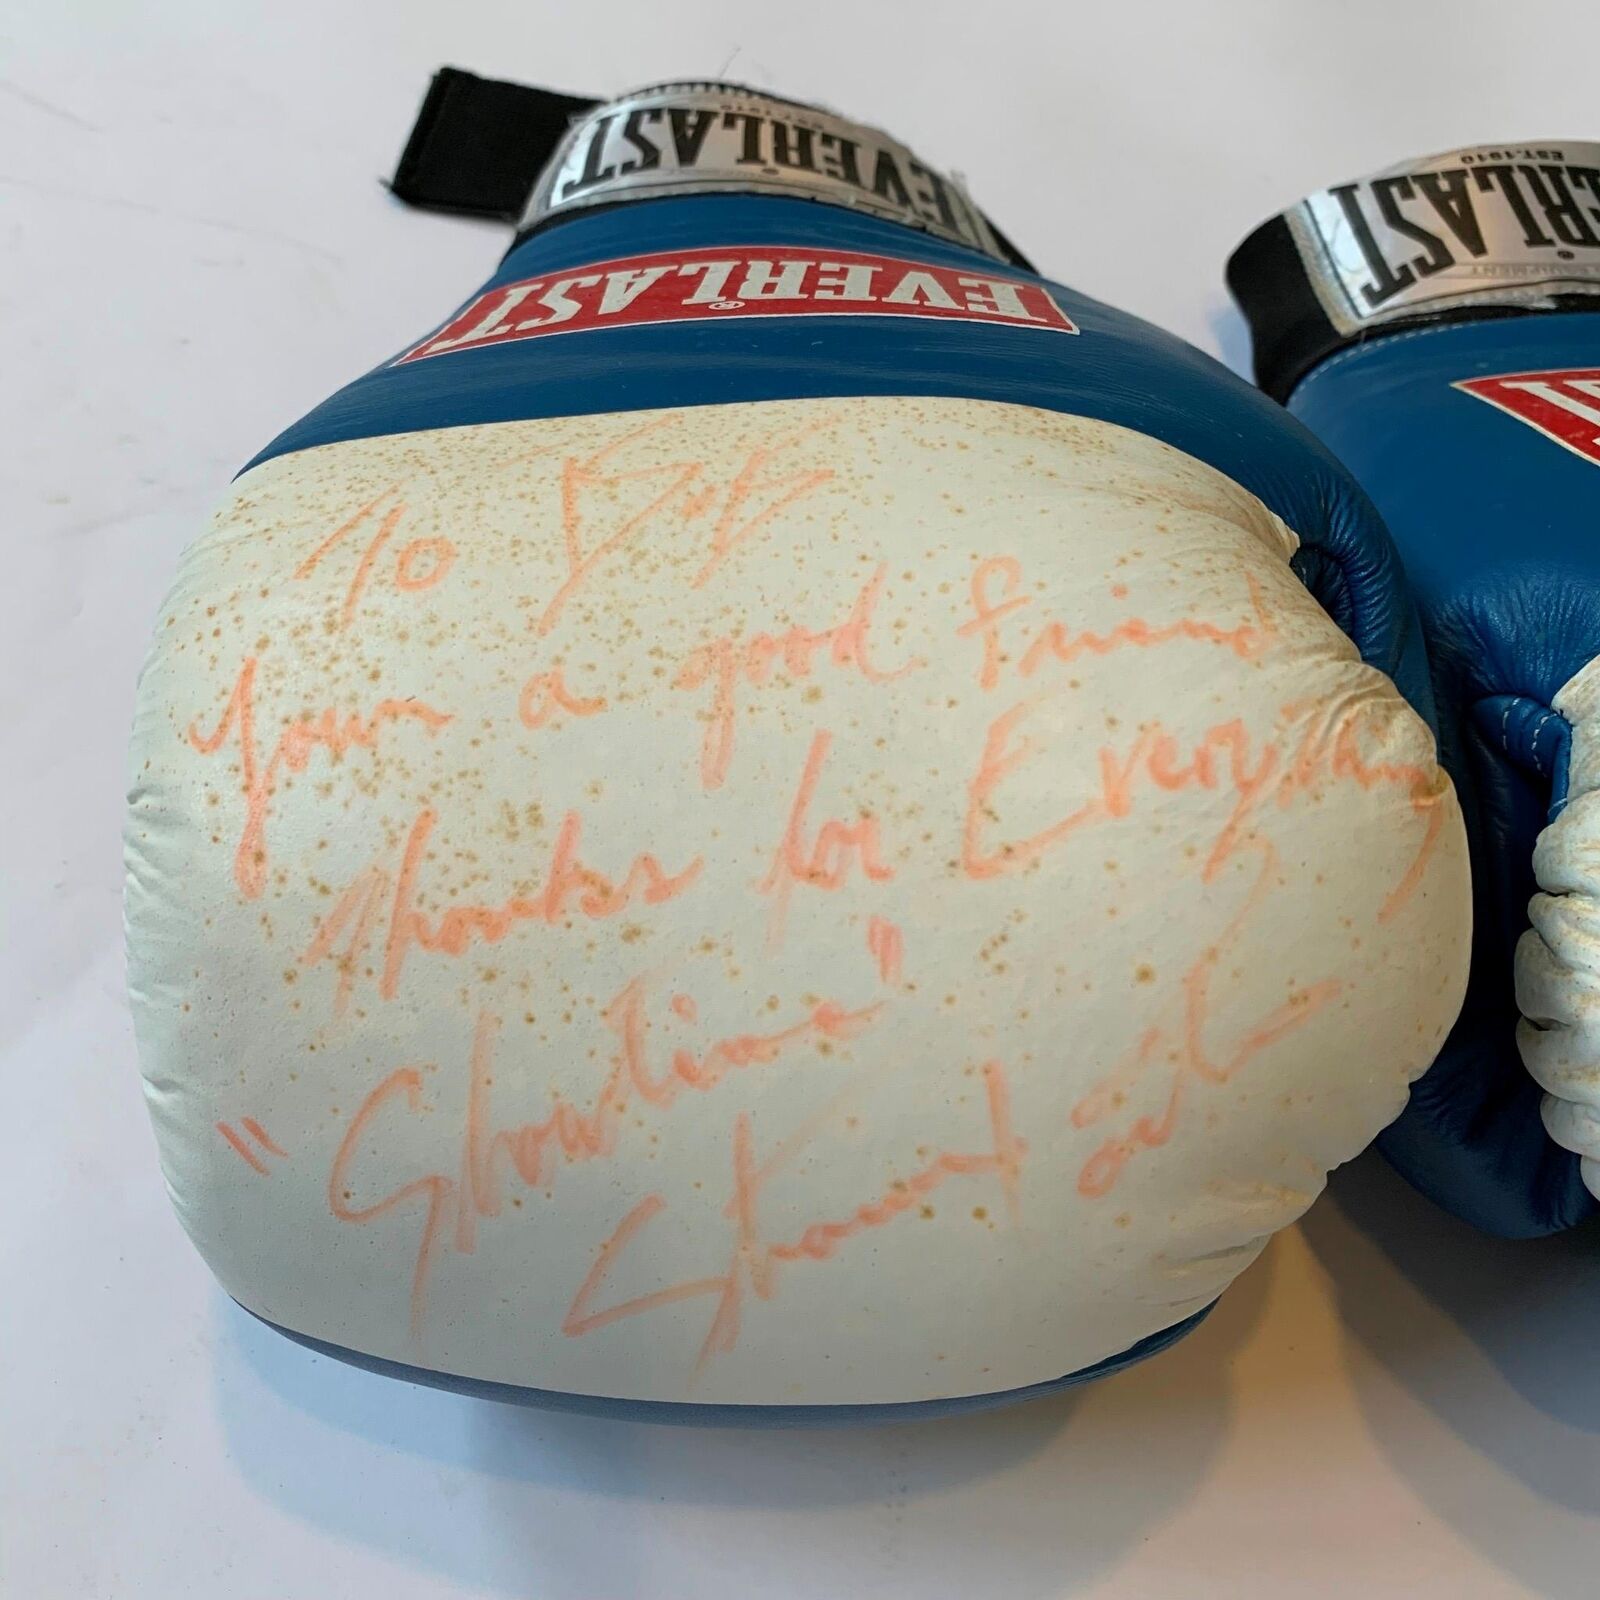 EVERLAST
EST. 1910
EVERLAST®
EVERLAST
EST. 1910
EQUIPMENT
To
Your a good friend
Thanks for Everything
"Showtime"